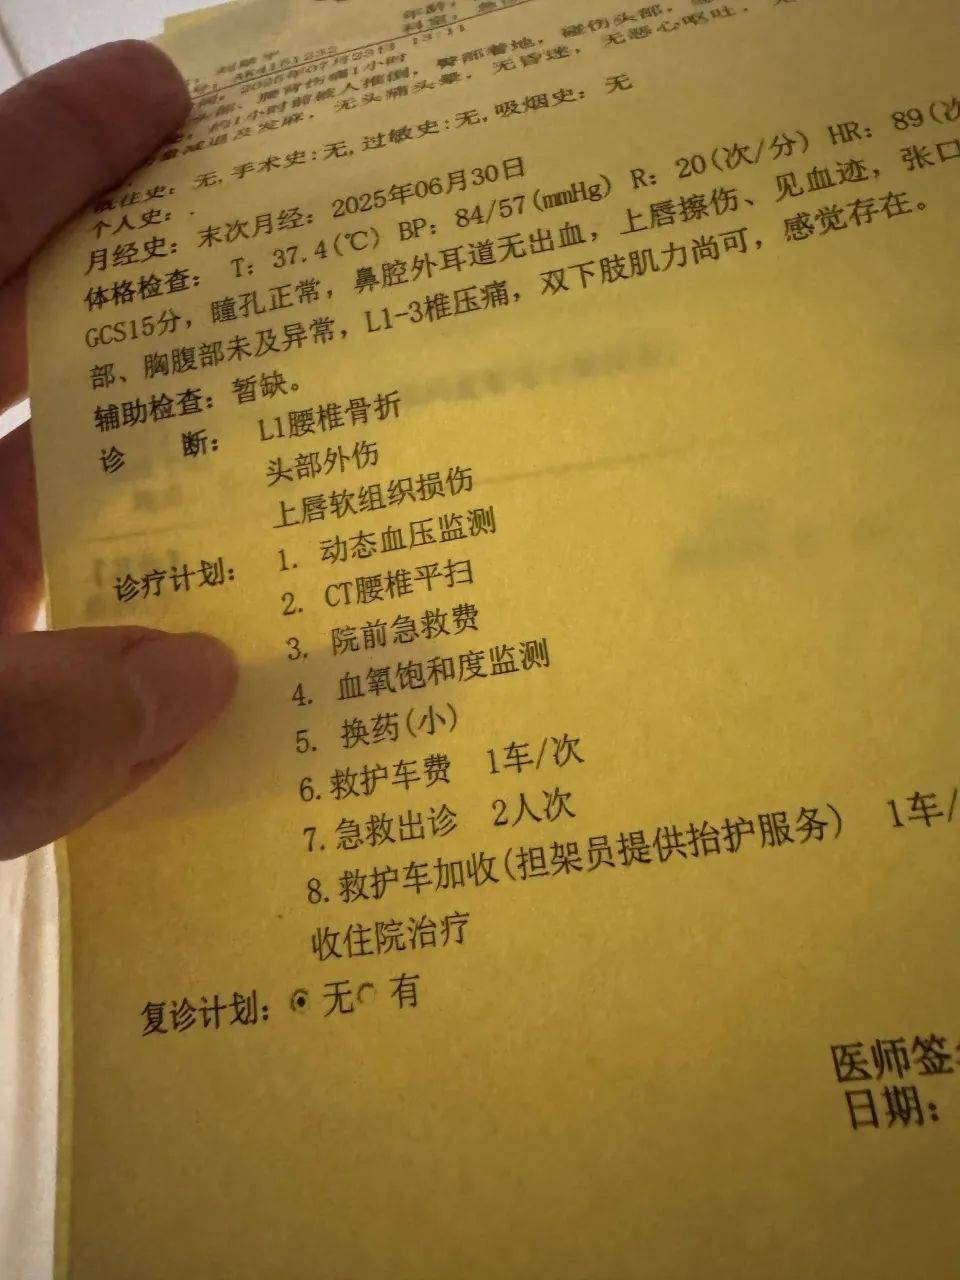 年龄：
科室：急
AK4151232
2025年07月23日 13:11
头部、腰背伤痛1小时
约1小时前被人推倒，臀部着地，碰伤头部，
减退及发麻，无头痛头晕，无昏迷，无恶心呕吐，
既往史：无,手术史:无,过敏史:无,吸烟史：无
个人史：.
月经史：末次月经：2025年06月30日
体格检查： T：37.4(℃) BP：84/57(mmHg) R：20(次/分) HR：89(次
GCS15分，瞳孔正常，鼻腔外耳道无出血，上唇擦伤、见血迹，张口
部、胸腹部未及异常，L1-3椎压痛，双下肢肌力尚可，感觉存在。
辅助检查：暂缺。
诊 断： L1腰椎骨折
头部外伤
上唇软组织损伤
诊疗计划： 1. 动态血压监测
2. CT腰椎平扫
3. 院前急救费
4. 血氧饱和度监测
5. 换药(小)
6.救护车费 1车/次
7.急救出诊 2人次
8.救护车加收(担架员提供抬护服务) 1车/
收住院治疗
复诊计划： 无 有
医师签
日期：